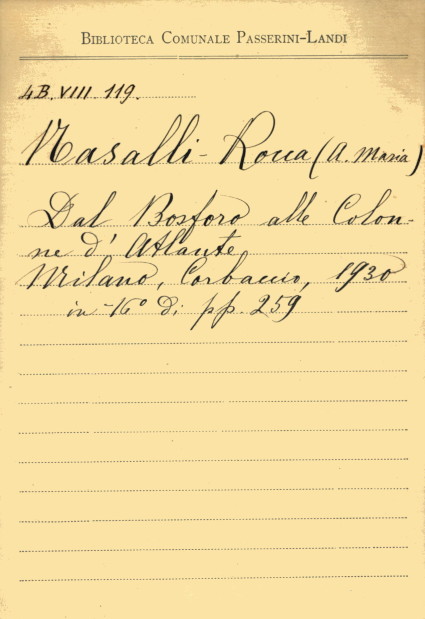 BIBLIOTECA COMUNALE PASSERINI-LANDI
4B.VIII.119.
Nasalli-Rocca (A. Maria)
Dal Bosforo alle Colon-
ne d'Atlante
Milano, Corbaccio, 1930
in-16° di pp. 259